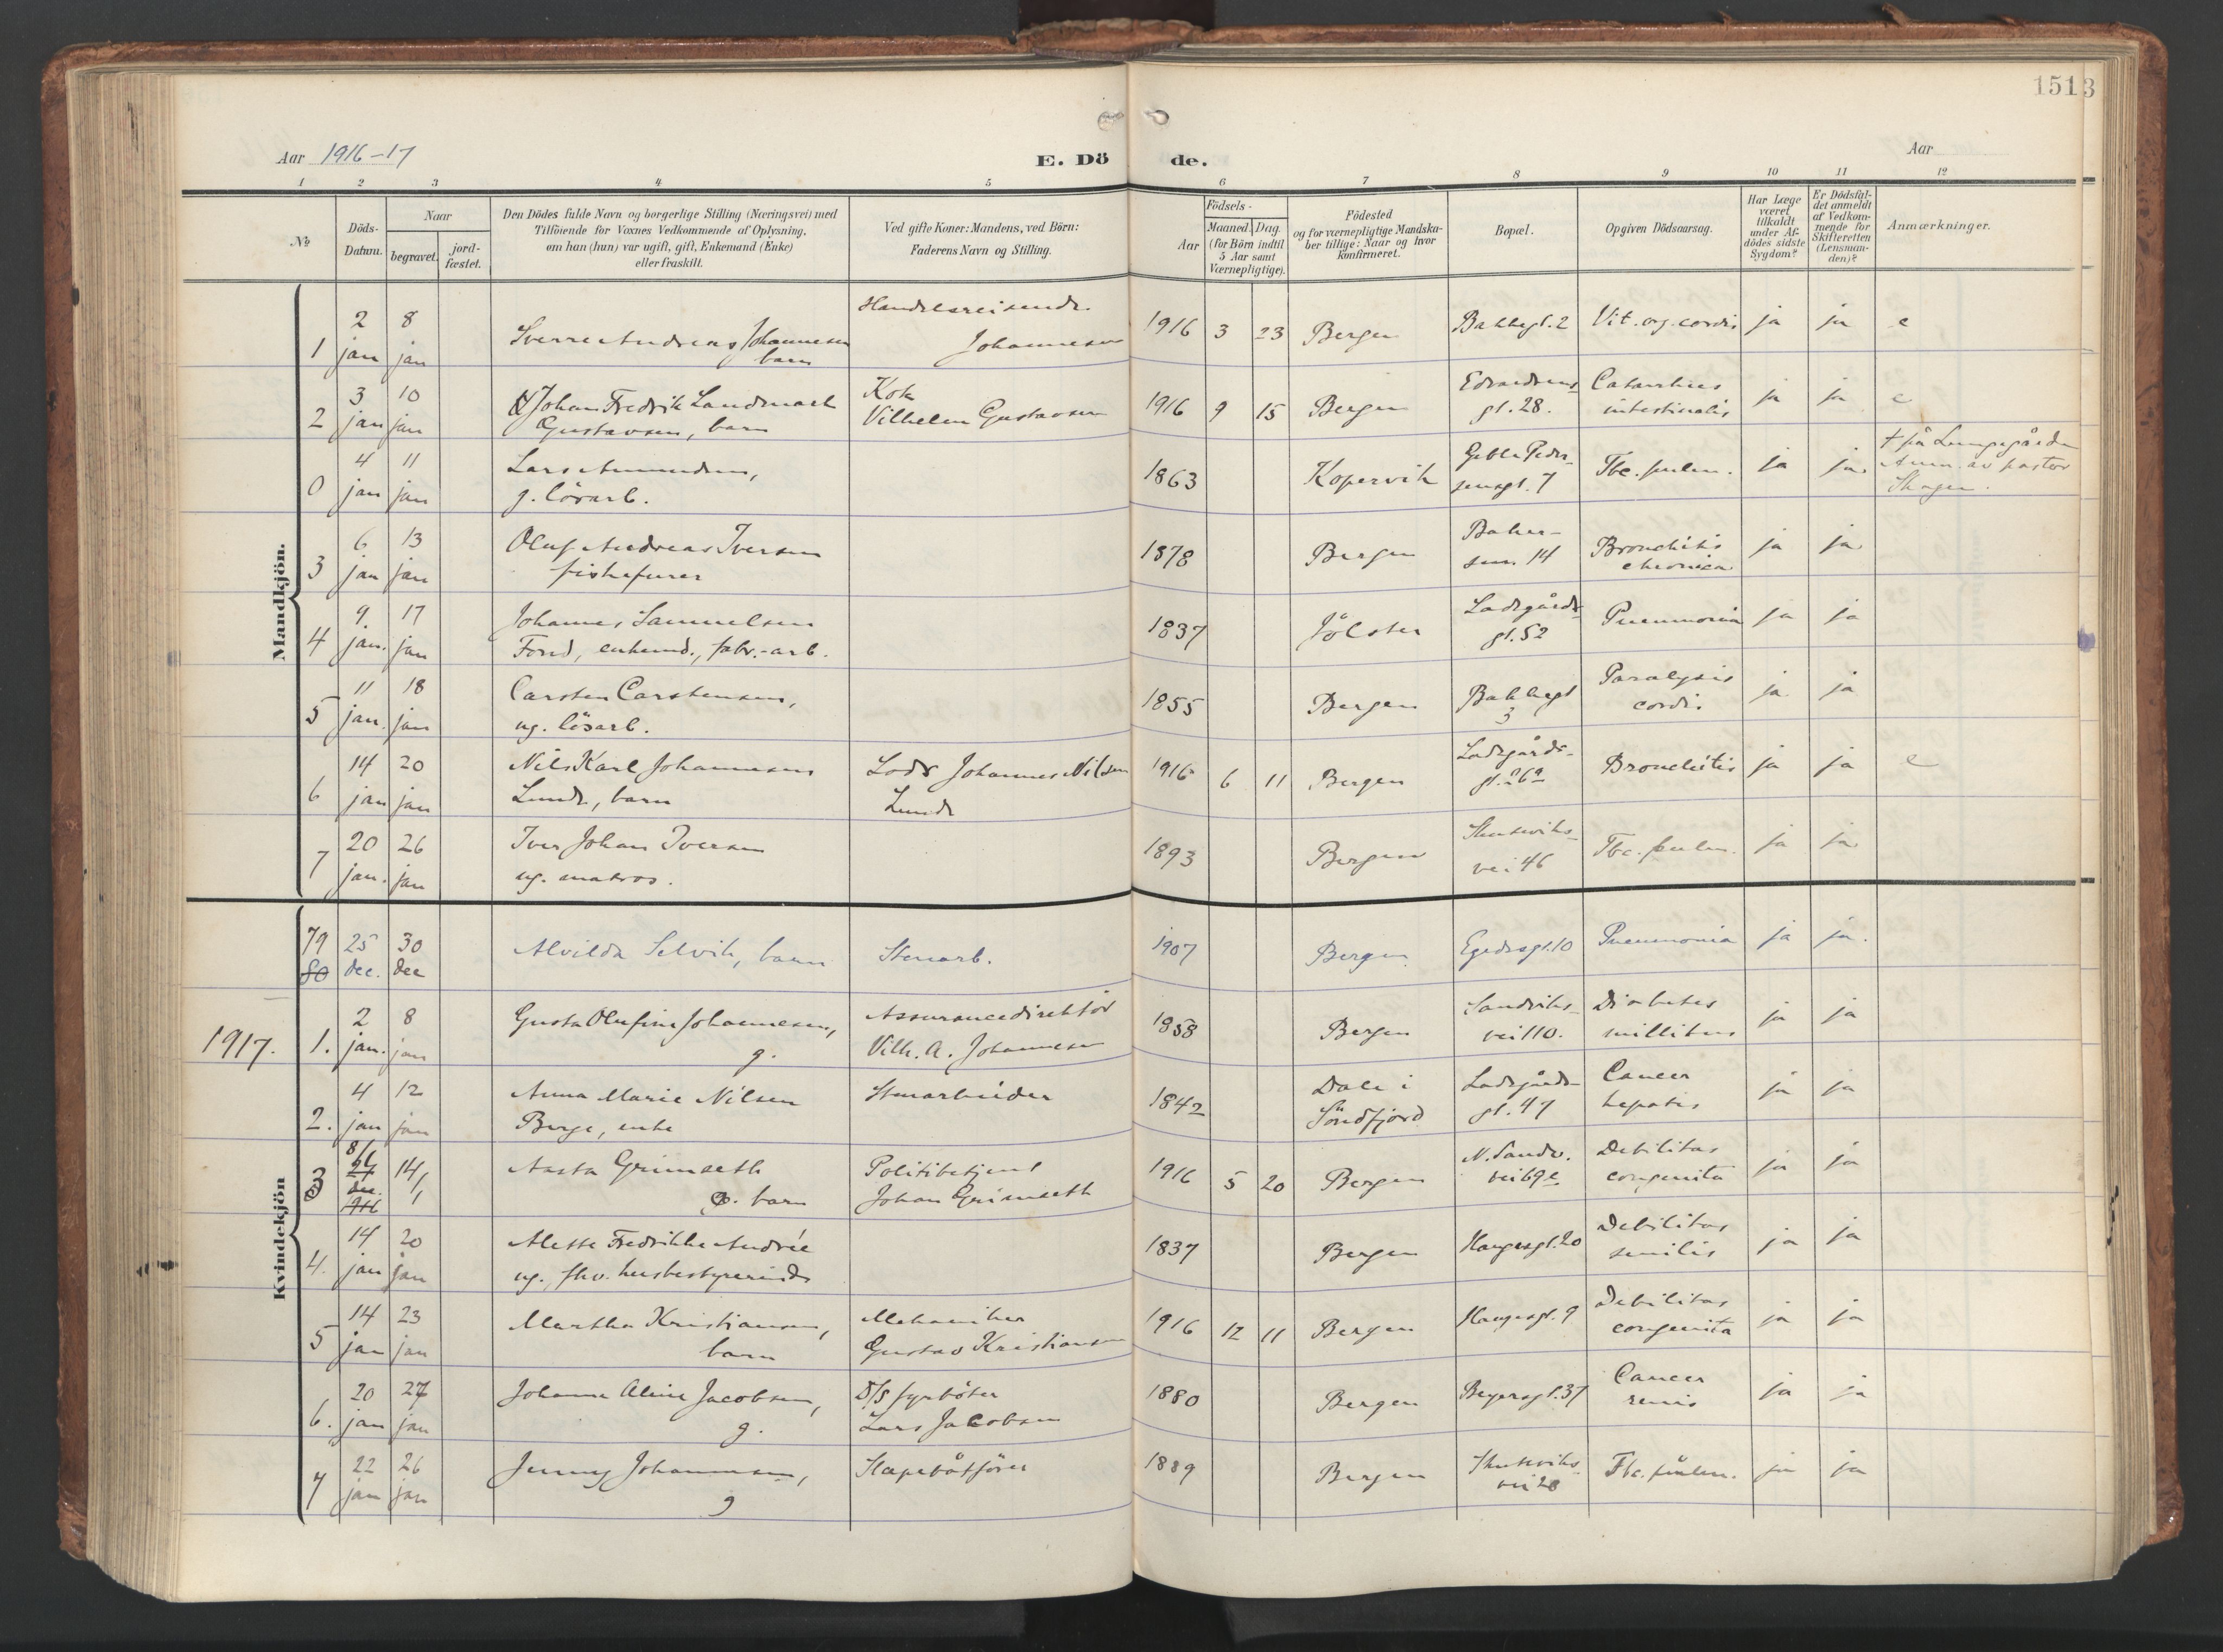 1513
Aar 1916-17
E. Dö de.
Aar
1 2 3 4 5 6 7 8 9 10 11 12
№
Döds-Datum.
Naar
begravet.
jord-fæstet.
Den Dödes fulde Navn og borgerlige Stilling (Næringsvei) med
Tilföiende for Voxnes Vedkommende af Oplysning,
om han (hun) var ugift, gift, Enkemand (Enke)
eller fraskilt.
Ved gifte Koner: Mandens, ved Börn:
Faderens Navn og Stilling.
Födsels-
Aar
Maaned. Dag.
(for Börn indtil
5 Aar samt
Værnepligtige).
Födested
og for værnepligtige Mandska-
ber tillige: Naar og hvor
konfirmeret.
Bopæl.
Opgiven Dödsaarsag.
Har Læge
været
tilkaldt
under Af-
dödes sidste
Sygdom?
Er Dödsfal-
det anmeldt
af Vedkom-
mende for
Skifteretten
(Lensman-
den)?
Anmærkninger.
Mandkjön.
1 2 jan 8 jan Sverre Andreas Johannesen barn Handelsreisende Johannesen 1916 3 23 Bergen Bakkegt. 2 Vit. org. cordis ja ja e
2 3 jan 10 jan Johan Fredrik Landmark Gustavsen, barn Kok Vilhelm Gustavsen 1916 9 15 Bergen Edvardsens gt. 28. Catarrhus intestinalis ja ja e
0 4 jan 11 jan Lars Amundsen, g. lösarb. 1863 Kopervik Geble Peder-sensgt. 7 Tbc. pulm. ja ja † på Lungegården Anm. av pastor Skagen.
3 6 jan 13 jan Oluf Andreas Iversen fiskefurer 1878 Bergen 14 Bronchitis chronica ja ja
4 9 jan. 17 jan Johannes Samuelsen Fond, enkemd., fabr.-arb. 1837 Jölster Ladegårds-gt. 52 Pneumonia ja ja
5 11 jan. 18 jan Carsten Carstensen, ug. lösarb. 1855 Bergen Bakkegt 3 Paralysis cordis ja ja
6 14 jan 20 jan Nils Karl Johannesen Lunde, barn Lods Johannes Nilsen Lunde 1916 6 11 Bergen Ladegårds-gt. 26a Bronchitis ja ja e
7 20 jan. 26 jan Iver Johan Iversen ug. matros. 1893 Bergen Skuteviks-vei 46 Tbc. pulm. ja ja
Kvindekjön
79 80 25 dec. 30 dec Alvilda Selvik, barn Stenarb. 1907 Bergen Egedesgt. 10 Pneumonia ja ja.
1917. 1. 2 jan. 8 jan Gusta Olufine Johannesen, g. Assurancedirektör Vilh. A. Johannesen 1858 Bergen Sandviks-vei 110. Diabetes millitus ja ja
2. 4 jan 12 jan Anna Marie Nilsen Berge, enke Stenarbeider 1842 Dale i Söndfjord Ladegårds-gt. 47 Cancer hepatis ja ja
3 8/1 27 dec. 916 14/1 Aasta Grimseth barn Politibetjent Johan Grimseth 1916 5 20 Bergen N. Sandv. vei 69e Debilitas congenita ja ja
4. 14 jan 20 jan Alette Fredrikke Andrée ug. fhv. husbestyrerinde 1837 Bergen Haugesgt. 20 Debilitas senilis ja ja
5 14 jan 23 jan Martha Kristiansen, barn Mekaniker Gustav Kristiansen 1916 12 11 Bergen Haugesgt. 9 Debilitas congenita ja ja
6. 20 jan 27 jan Johanne Aline Jacobsen, g. D/S fyrböter Lars Jakobsen 1880 Bergen Beyersgt. 37 Cancer renis ja ja
7 22 jan 26 jan Jenny Johannesen, g Slæpebåtförer 1889 Bergen Skuteviks-vei 20 Tbc. pulm. ja ja